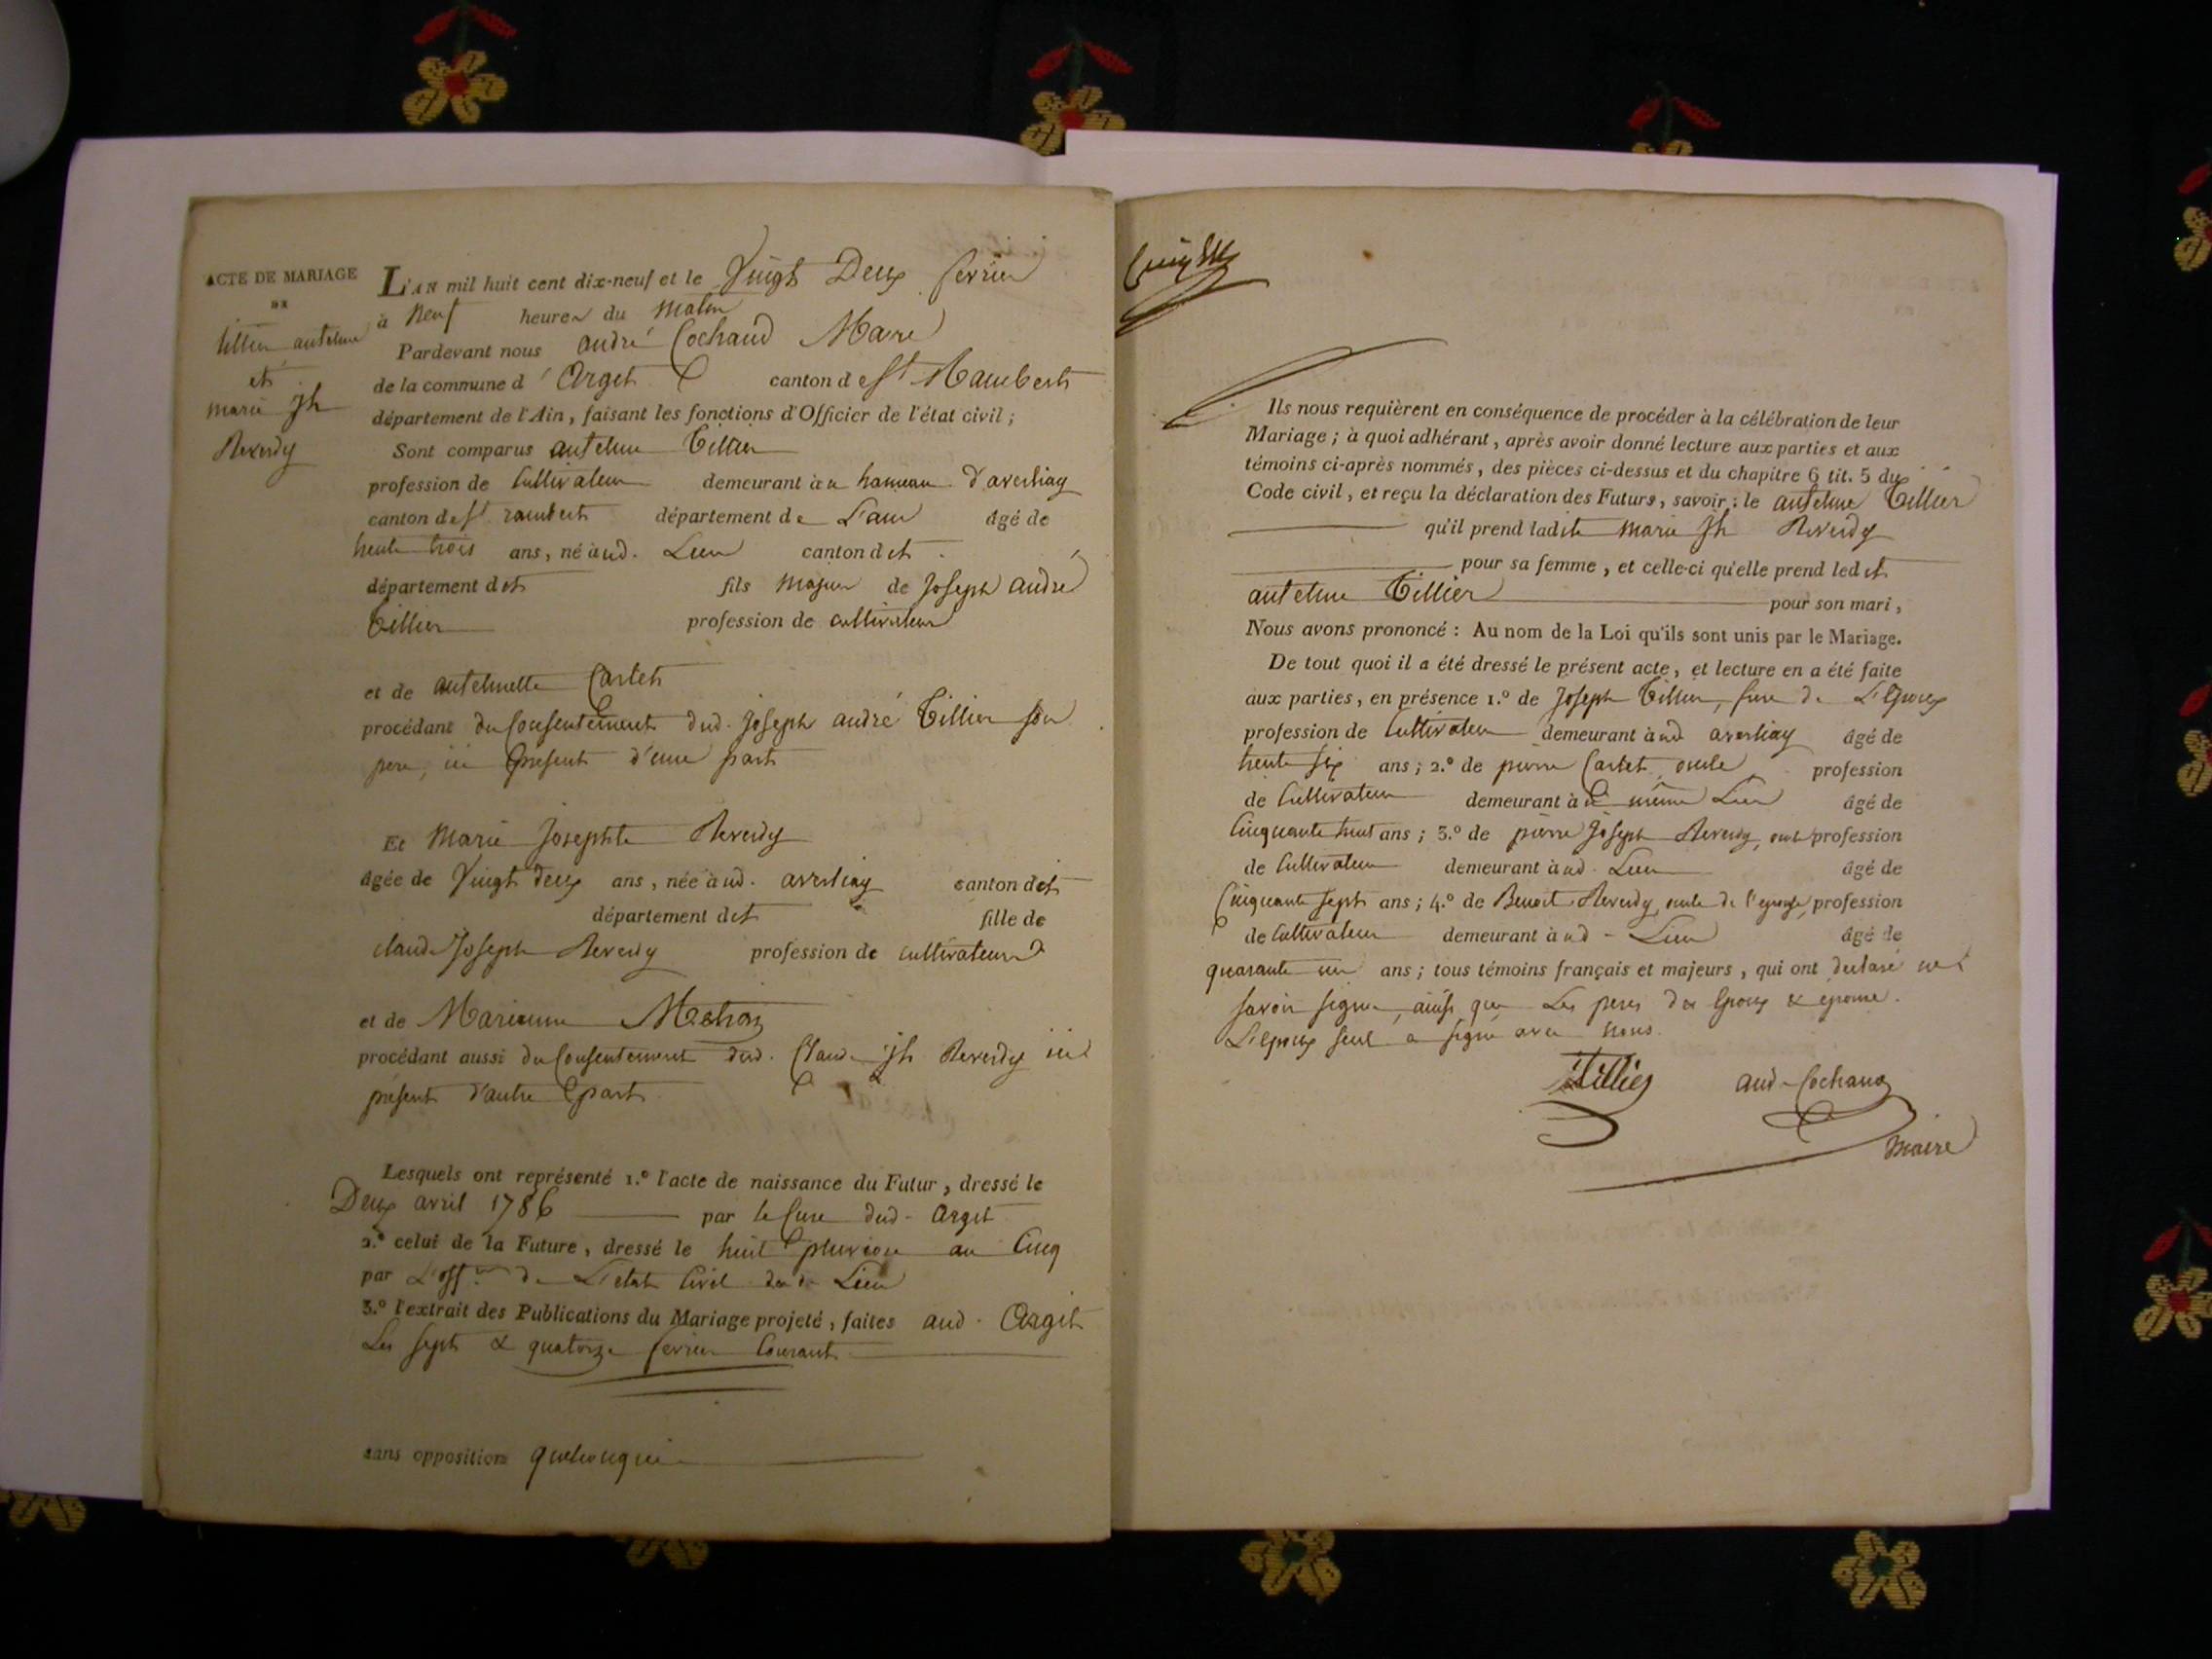 ACTE DE MARIAGE
DE
tillier antelme
et
marie jh
Reverdy
L'AN mil huit cent dix-neuf et le Vingt Deux fevrier
à Neuf heures du Matin
Pardevant nous andré Cochaud Maire
de la commune d'Arget canton de St Rambert
département de l'Ain, faisant les fonctions d'Officier de l'état civil;
Sont comparus antelme Tillier
profession de Cultivateur demeurant àu hameau d'averliaz
canton de St rambert département de L'ain âgé de
trente trois ans, né àud. Lieu canton dit
département dit fils Majeur de Joseph andré
Tillier profession de cultivateur
et de antelmette Cartet
procédant du Consentement dud. Joseph andré Tillier son
pere, ici present d'une part
Et Marie Josephte Reverdy
âgée de Vingt deux ans, née àud. averliaz canton dit
département dit fille de
claude Joseph Reverdy profession de cultivateur
et de Marianne
procédant aussi du Consentement dud. Claude jh Reverdy ici
présent d'autre part
Lesquels ont représenté 1.º l'acte de naissance du Futur, dressé le
Deux avril 1786 par le Cure dud. Arget
2.º celui de la Future, dressé le huit pluviose an Cinq
par L'off.er de L'etat Civil dud. Lieu
3.º l'extrait des Publications du Mariage projeté, faites aud. Arget
Les sept & quatorze fevrier Courant
sans opposition quelconque
Ils nous requièrent en conséquence de procéder à la célébration de leur
Mariage; à quoi adhérant, après avoir donné lecture aux parties et aux
témoins ci-après nommés, des pièces ci-dessus et du chapitre 6 tit. 5 du
Code civil, et reçu la déclaration des Futurs, savoir: le antelme Tillier
qu'il prend ladite marie jh Reverdy
pour sa femme, et celle-ci qu'elle prend ledit
antelme Tillier pour son mari,
Nous avons prononcé: Au nom de la Loi qu'ils sont unis par le Mariage.
De tout quoi il a été dressé le présent acte, et lecture en a été faite
aux parties, en présence 1.º de Joseph Tillier, frere de L'Epoux
profession de Cultivateur demeurant àud averliaz âgé de
trente six ans; 2.º de pierre Cartet, oncle profession
de Cultivateur demeurant à même Lieu âgé de
Cinquante huit ans; 3.º de pierre Joseph Reverdy, oncle profession
de Cultivateur demeurant àud. Lieu âgé de
Cinquante sept ans; 4.º de Benoit Reverdy, oncle de l'epouse, profession
de Cultivateur demeurant àud. Lieu âgé de
quarante un ans; tous témoins français et majeurs, qui ont declaré ne
savoir signer, ainsi que Les peres des Epoux & epouse.
L'Epoux seul a signé avec nous.
Tillier and. Cochaud
Maire